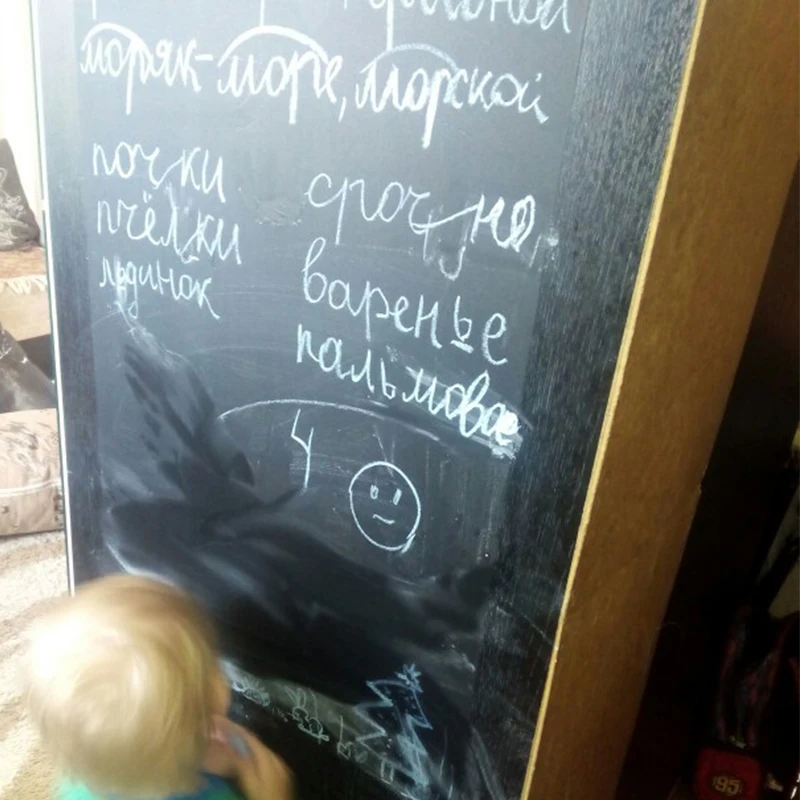 моряк-море, морской
почки
пчёлки
льдинок
срочно
варенье
пальмова
4
95